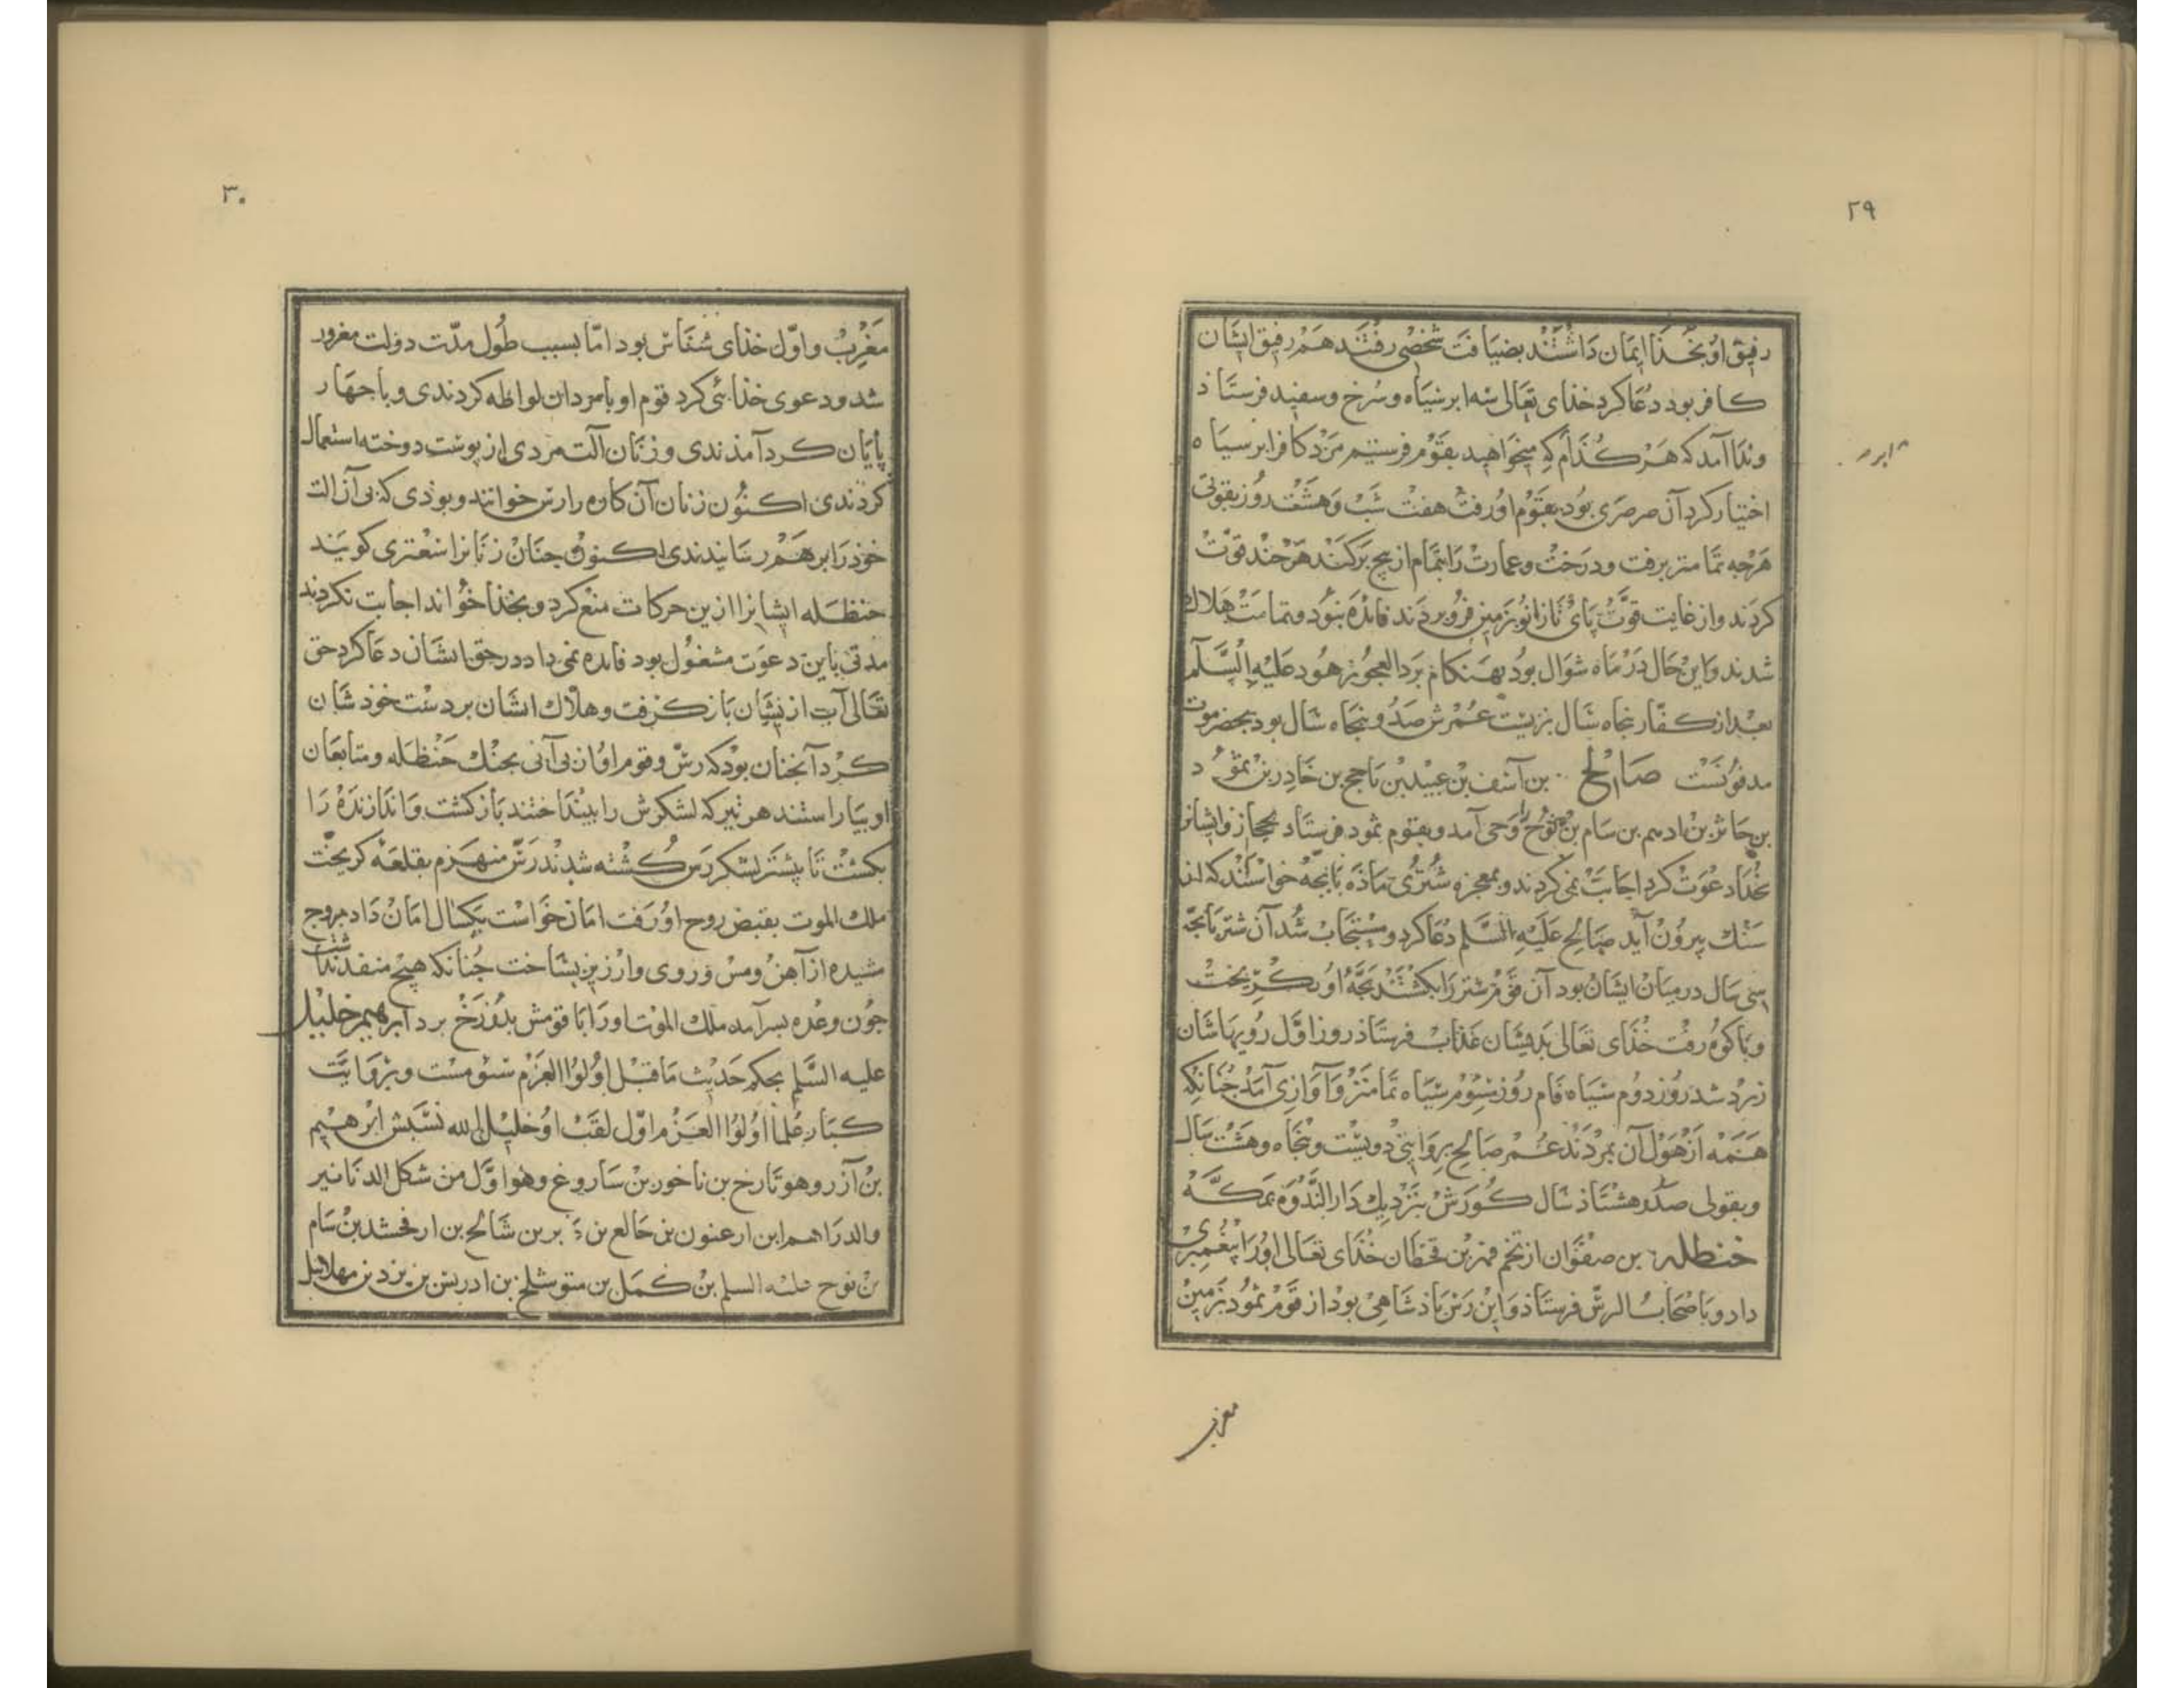 ۲۹
رفیق او بخذا ایمان داشتند بضیافت شخصی رفتند هم رفیق ایشان
کافر بود دعا کرد خذای تعالی سه ابر سیاه و سرخ و سفید فرستاذ
و ندا آمد که هر کذام که میخواهید بقوم فرستیم مرد کافر ابر سیاه
ابر
اختیار کرد آن صرصری بود بقوم او رفت هفت شب و هشت روز بقوتی
هرچه تمامتر برفت و درخت و عمارت را بتمام از بیخ برکند هر چند قوت
کردند و از غایت قوت پای تا زانو بزمین فرو بردند فائده نبود و تمامت هلاک
شدند و این حال در ماه شوال بود بهنکام برد العجوز هود علیه السلام
بعد از کفار پنجاه سال بزیست عمرش صد و پنجاه سال بود بحضرموت
مدفونست صالح بن آسف بن عبید بن ناجح بن خادر بن ثمود
بن حاثر بن ارم بن سام بن نوح را وحی آمد و بقوم ثمود فرستاد بحجاز و ایشانرا
بخدا دعوت کرد اجابت نمی کردند و بمعجزه شتری ماذه با بچه خواستند که از
سنک بیرون آید صالح علیه السلم دعا کرد و مستجاب شد آن شتر با بچه
سی سال در میان ایشان بود آن قوم شتر را بکشتند بچه او بکریخت
و با کوه رفت خذای تعالی بدیشان عذاب فرستاذ روز اول رویهاشان
زرد شد روز دوم سیاه فام روز سوم سیاه تمامتر و آوازی آمد چنانکه
همه از هول آن بمردند عمر صالح بروایتی دویست و پنجاه و هشت سال
و بقولی صد و هشتاذ سال کورش بنزدیک دار الندوه بمکه
حنظله بن صفوان از تخم فهر بن قحطان خذای تعالی او را پیغمبری
داد و باصحاب الرس فرستاذ و این رس پاذشاهی بود از قوم ثمود بزمین
مغرب
۳۰
مغرب و اول خذای شناس بود اما بسبب طول مدت دولت مغرور
شد و دعوی خذائی کرد قوم او با مردان لواطه کردندی و با جهار
پایان کرد آمذندی و زنان آلت مردی از پوست دوخته استعمال
کردندی اکنون زنان آن کاره را رس خوانند و بوذی که بی آن الت
خوذ را بر هم رسانیدندی اکنون چنان زنانرا سعتری کویند
حنظله ایشانرا ازین حرکات منع کرد و بخذا خواند اجابت نکردند
مدتی باین دعوت مشغول بود فائده نمی داد در حق ایشان دعا کرد حق
تعالی آب ازیشان باز کرفت و هلاک ایشان بر دست خوذ شان
کرد آنچنان بود که رس و قوم او از بی آبی بجنک حنظله و متابعان
او بیاراستند هر تیر که لشکرش را بینداختند باز کشت و اندازنده را
بکشت تا بیشتر لشکر رس کشته شدند رس منهزم بقلعه کریخت
ملک الموت بقبض روح او رفت امان خواست یکسال امان داد بروج
مشیده از آهن و مس و روی و ارزیز بساخت چنانکه هیچ منفذ نداشت
چون وعده بسر آمد ملک الموت او را با قومش بدوزخ برد ابرهیم خلیل
علیه السلم بحکم حدیث ماقبل اولوا العزم سوم است و بروایت
کبار علما اولوا العزم اول لقب او خلیل الله نسبش ابرهیم
بن آزر و هو تارخ بن ناخور بن ساروغ و هو اول من شکل الدنانیر
والدراهم ابن ارعنون بن حالع بن بر بن شالخ بن ارفخشد بن سام
بن نوح علیه السلم بن کمل بن متوشلخ بن ادریس بن یزد بن مهلائیل